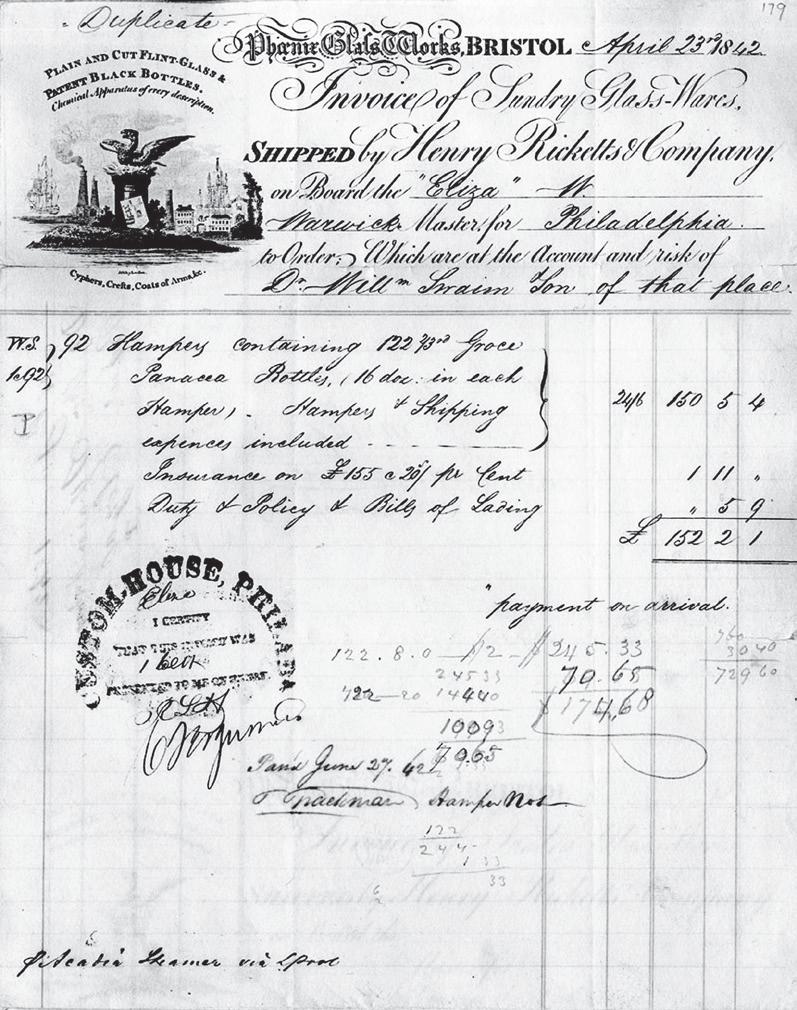 179
Duplicate
Phœnix Glass Works, BRISTOL April 23rd 1842
PLAIN AND CUT FLINT-GLASS &
PATENT BLACK BOTTLES.
Chemical Apparatus of every description.
Cyphers, Crests, Coats of Arms, &c.
Invoice of Sundry Glass-Wares,
SHIPPED by Henry Ricketts & Company,
on Board the "Eliza" W.
Warwick Master, for Philadelphia
to Order; Which are at the Account and risk of
Dr. Willm Swaim Son of that place.
W.S. 92 Hampers containing 122 2/3rd Groce
1@92 Panacea Bottles, (16 doz: in each
Hamper). Hampers & Shipping 24/6 150 5 4
expences included
Insurance on £155 @ 20/ pr Cent 1 11 "
Duty & Policy & Bills of Lading " 5 9
£ 152 2 1
CUSTOM-HOUSE, PHILADA
Eliza
I CERTIFY
THAT THIS INVOICE WAS
PRESENTED TO ME ON ENTRY.
"payment on arrival.
122.8.0 $2 $245.33
2453 70.65
722 20 14440 $174,68
10093
7065
760
3040
72960
Paid June 27. 42
Hamper Not
122
244
1 33
33
Acadia Steamer via Lpool